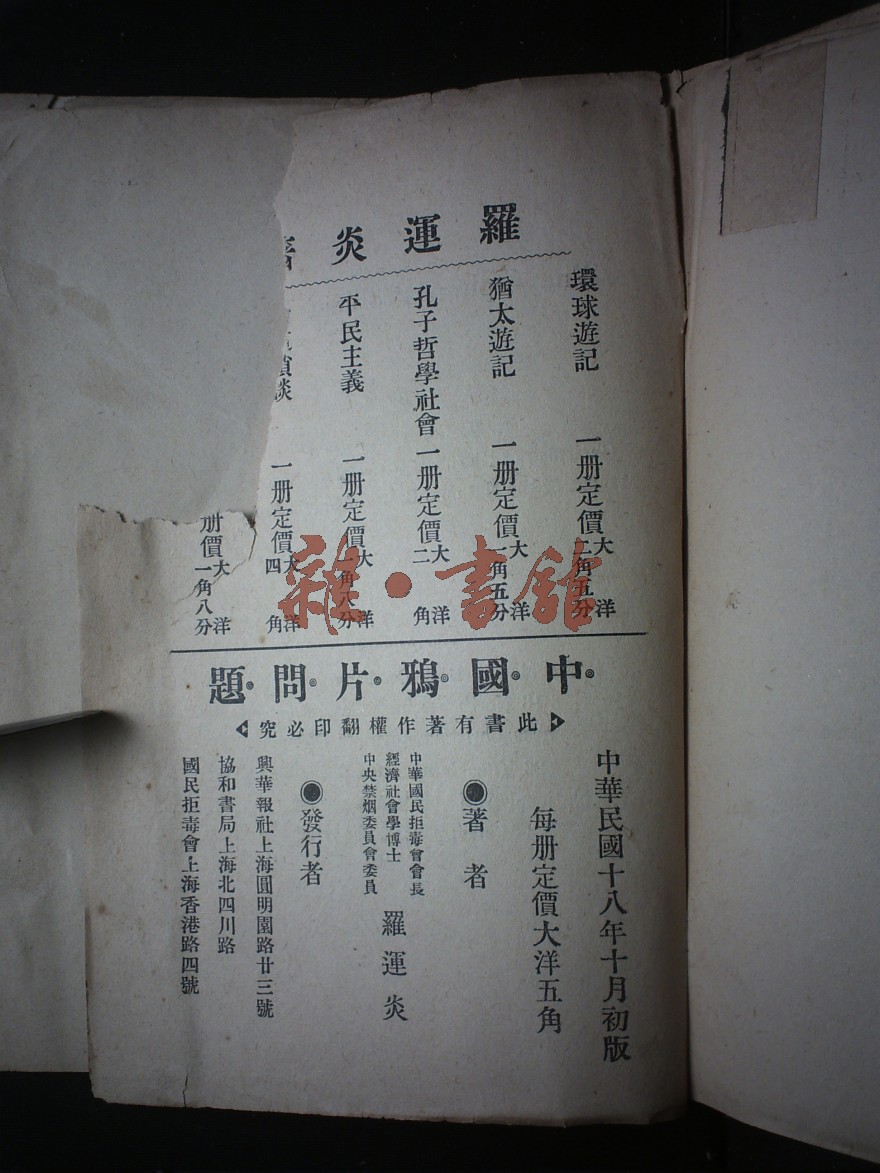 羅運炎
環球遊記 一册定價大洋二角五分
猶太遊記 一册定價大洋一角五分
孔子哲學社會 一册定價大洋二角
平民主義 一册定價大洋一角八分
談 一册定價大洋四角
册價大洋一角八分
雜·書館
中國鴉片問題
此書有著作權翻印必究
中華民國十八年十月初版
每册定價大洋五角
著者
中華國民拒毒會會長
經濟社會學博士
中央禁烟委員會委員
羅運炎
發行者
興華報社上海圓明園路廿三號
協和書局上海北四川路
國民拒毒會上海香港路四號